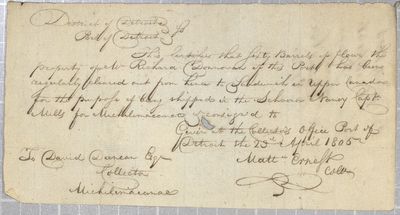 District of Detroit
Port of Detroit } ss
This Certifies that sixty Barrels of flour the
property of Mr Richard Donovan of this Port has been
regularly cleared out from hence to Sandwich in Upper Canada
for the purpose of being shipped in the Schooner Nancy Capt.
Mills for Michilimacinac consigned to
Given at the Collectors Office Port of
Detroit the 25th April 1805
To David Duncan Esqr
Matt Ernest
Collector
Colr
Michilimacinac